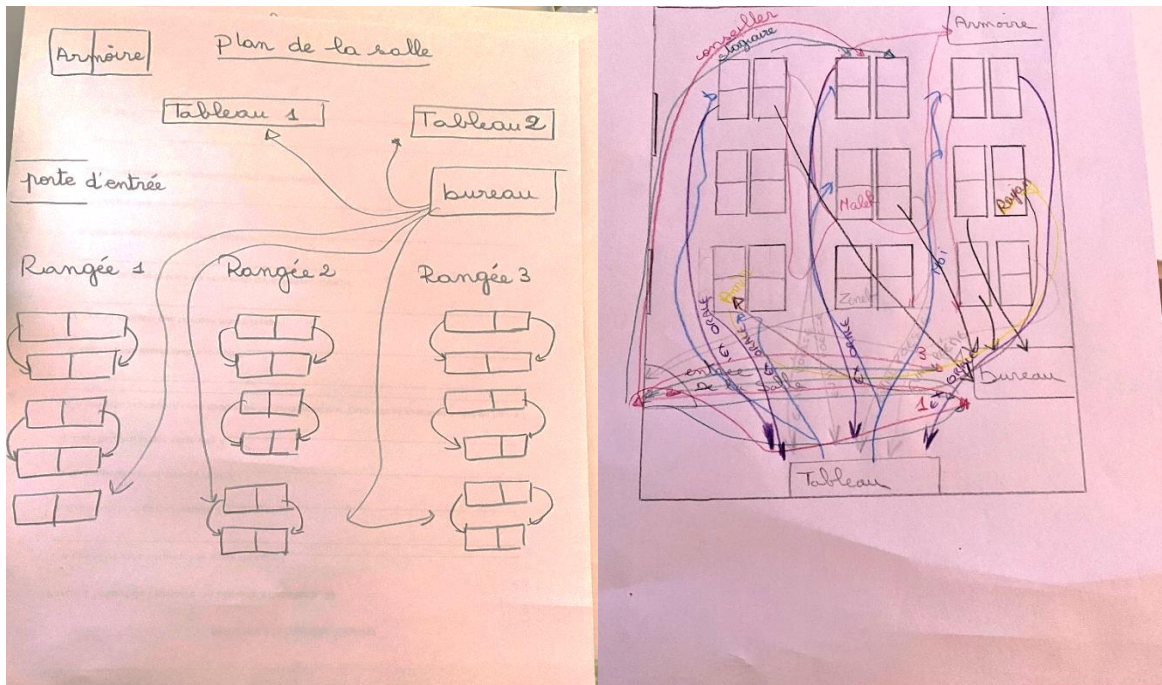 Plan de la salle
Armoire
Tableau 1
Tableau 2
porte d'entrée
bureau
Rangée 1
Rangée 2
Rangée 3
conseiller
stagiaire
Armoire
Malek
Rayan
Zineb
Moi
EX ORALE
ORALE
EX ORALE
EX ORALE
3
entrée
De la salle
bureau
1
Tableau